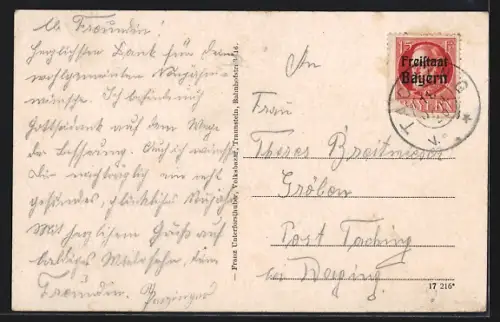 Lb. Freundin!
Herzlichsten Dank für Deine
wohlgemeinten Neujahrs-
wünsche. Ich befinde mich
Gottseidank auf dem Wege
der Besserung. Auch ich wünsche
Dir nachträglich ein recht
gesundes, glückliches Neujahr
Mit herzlichem Gruß auf
baldiges Wiedersehn, Deine
Freundin.
Franz Unterforsthuber, Volksbazar, Traunstein, Bahnhofstraße
15
Freistaat
Bayern
BAYERN
An
Frau
Theres Breitwieser
Gröben
Post Taching
bei Waging
17 216*